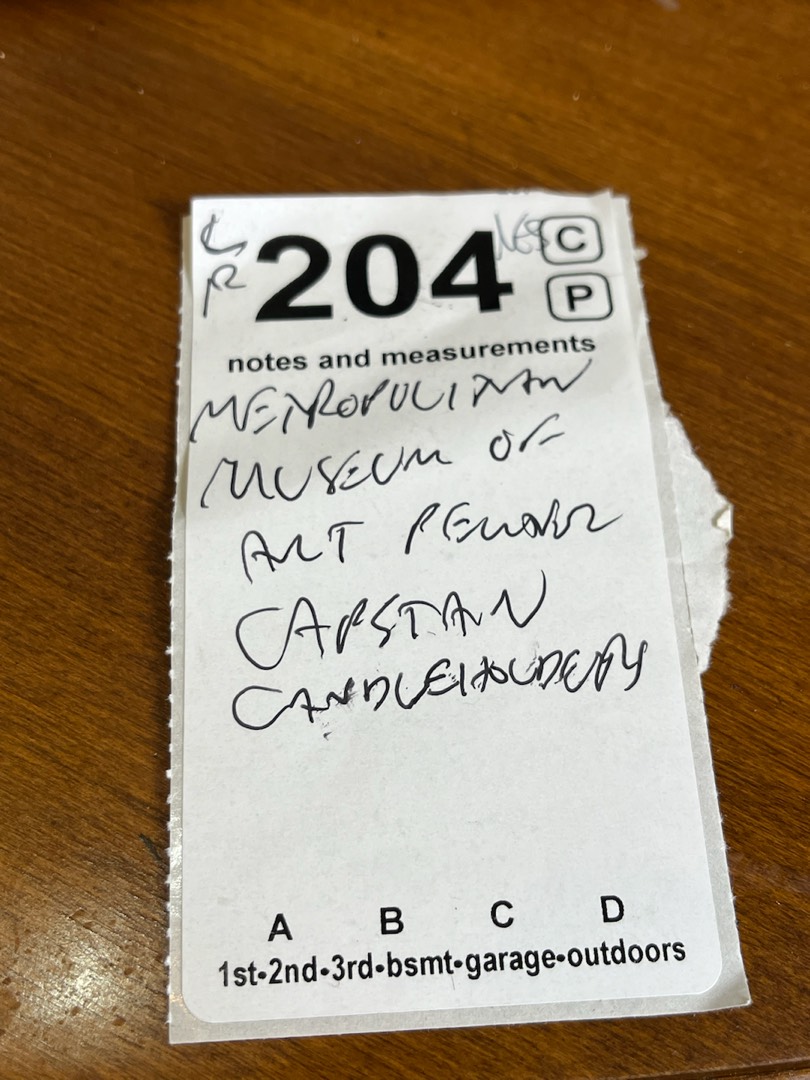 LR 204 NES C
P
notes and measurements
METROPOLITAN
MUSEUM OF
ART PEWTER
CAPSTAN
CANDLEHOLDERS
A B C D
1st•2nd•3rd•bsmt•garage•outdoors